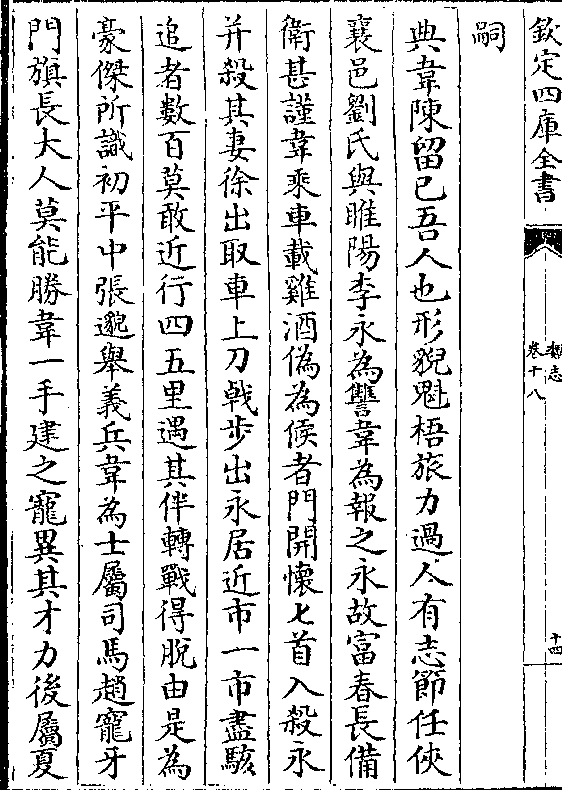 欽定四庫全書
魏志
卷十八
十四
嗣
典韋陳留已吾人也形貌魁梧旅力過人有志節任俠
襄邑劉氏與睢陽李永為讐韋為報之永故富春長備
衛甚謹韋乘車載雞酒偽為候者門開懷匕首入殺永
并殺其妻徐出取車上刀戟步出永居近市一市盡駭
追者數百莫敢近行四五里遇其伴轉戰得脫由是為
豪傑所識初平中張邈舉義兵韋為士屬司馬趙寵牙
門旗長大人莫能勝韋一手建之寵異其才力後屬夏